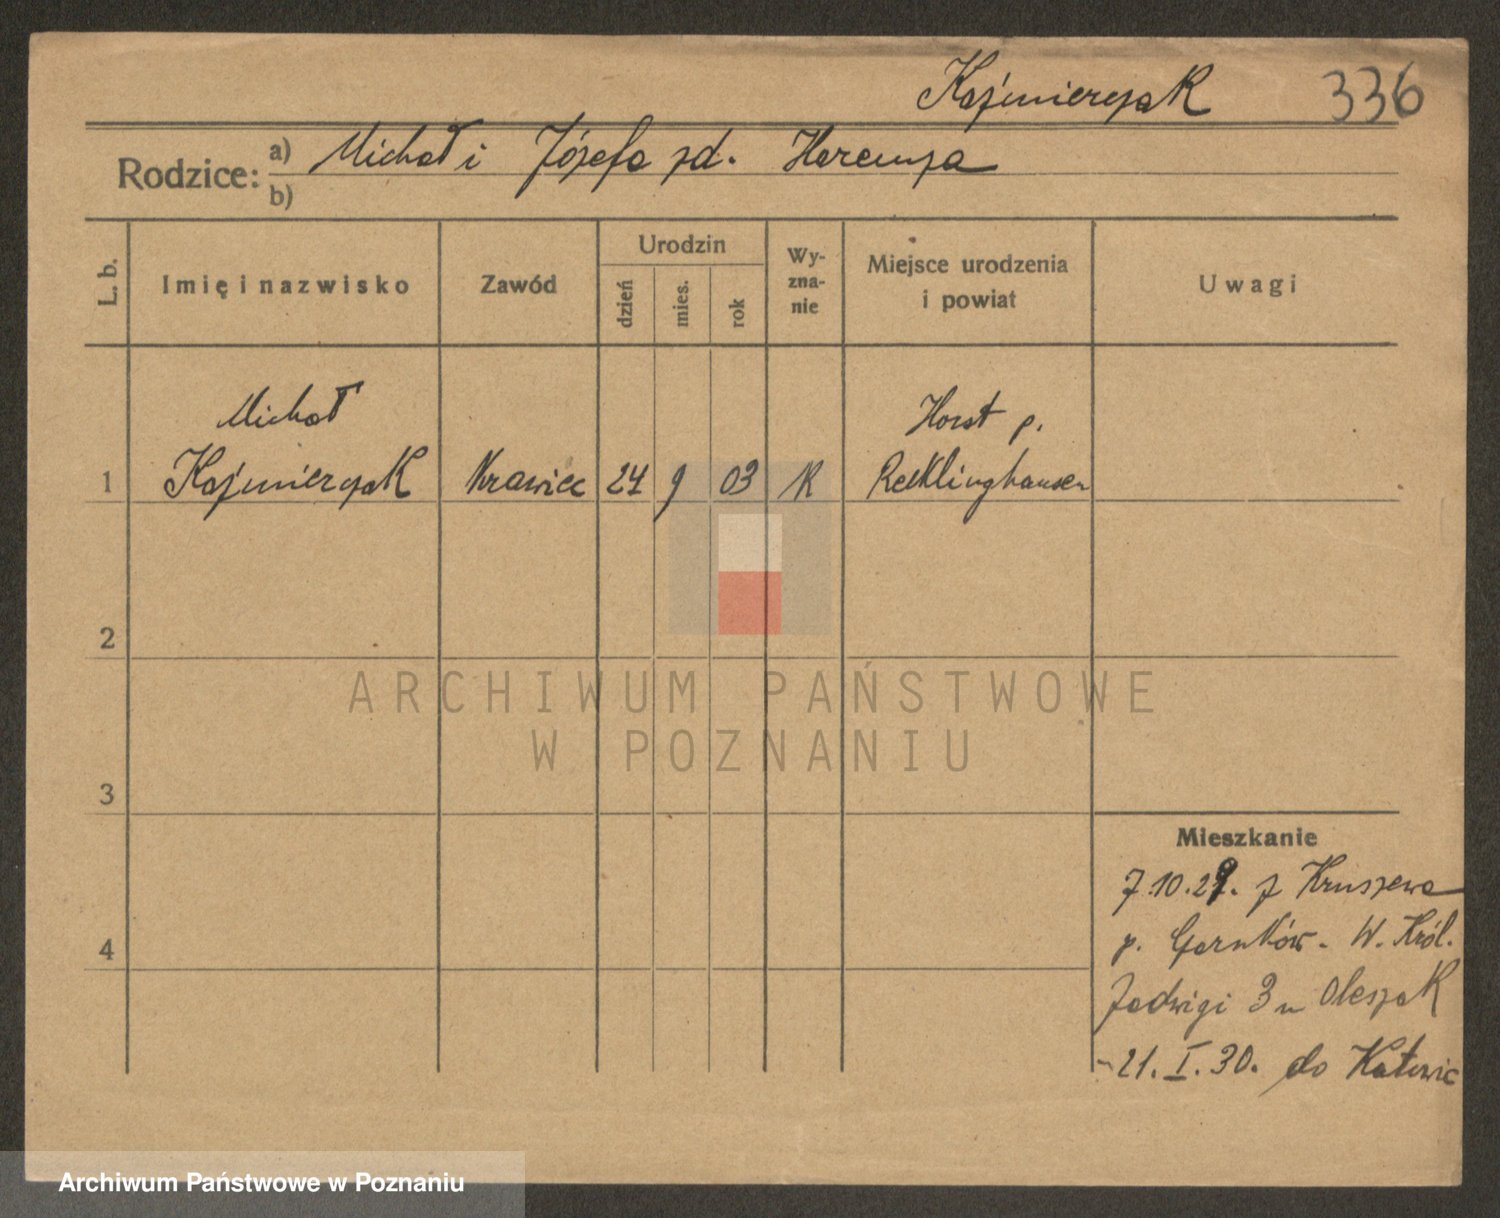 Kaźmierczak 336
Rodzice: a) Michał i Józefa zd. Haremza
b)
L. b. Imię i nazwisko Zawód Urodzin dzień mies. rok Wy-zna-nie Miejsce urodzenia i powiat Uwagi
Michał Horst p.
1 Kaźmierczak Krawiec 24 9 03 K Recklinghausen
2
ARCHIWUM PAŃSTWOWE
W POZNANIU
3
Mieszkanie
7.10.29. z Kruszewa
p. Czarnków - W. Król.
4
Jadwigi 3 u Oleszak
-21.I.30. do Katowic
Archiwum Państwowe w Poznaniu